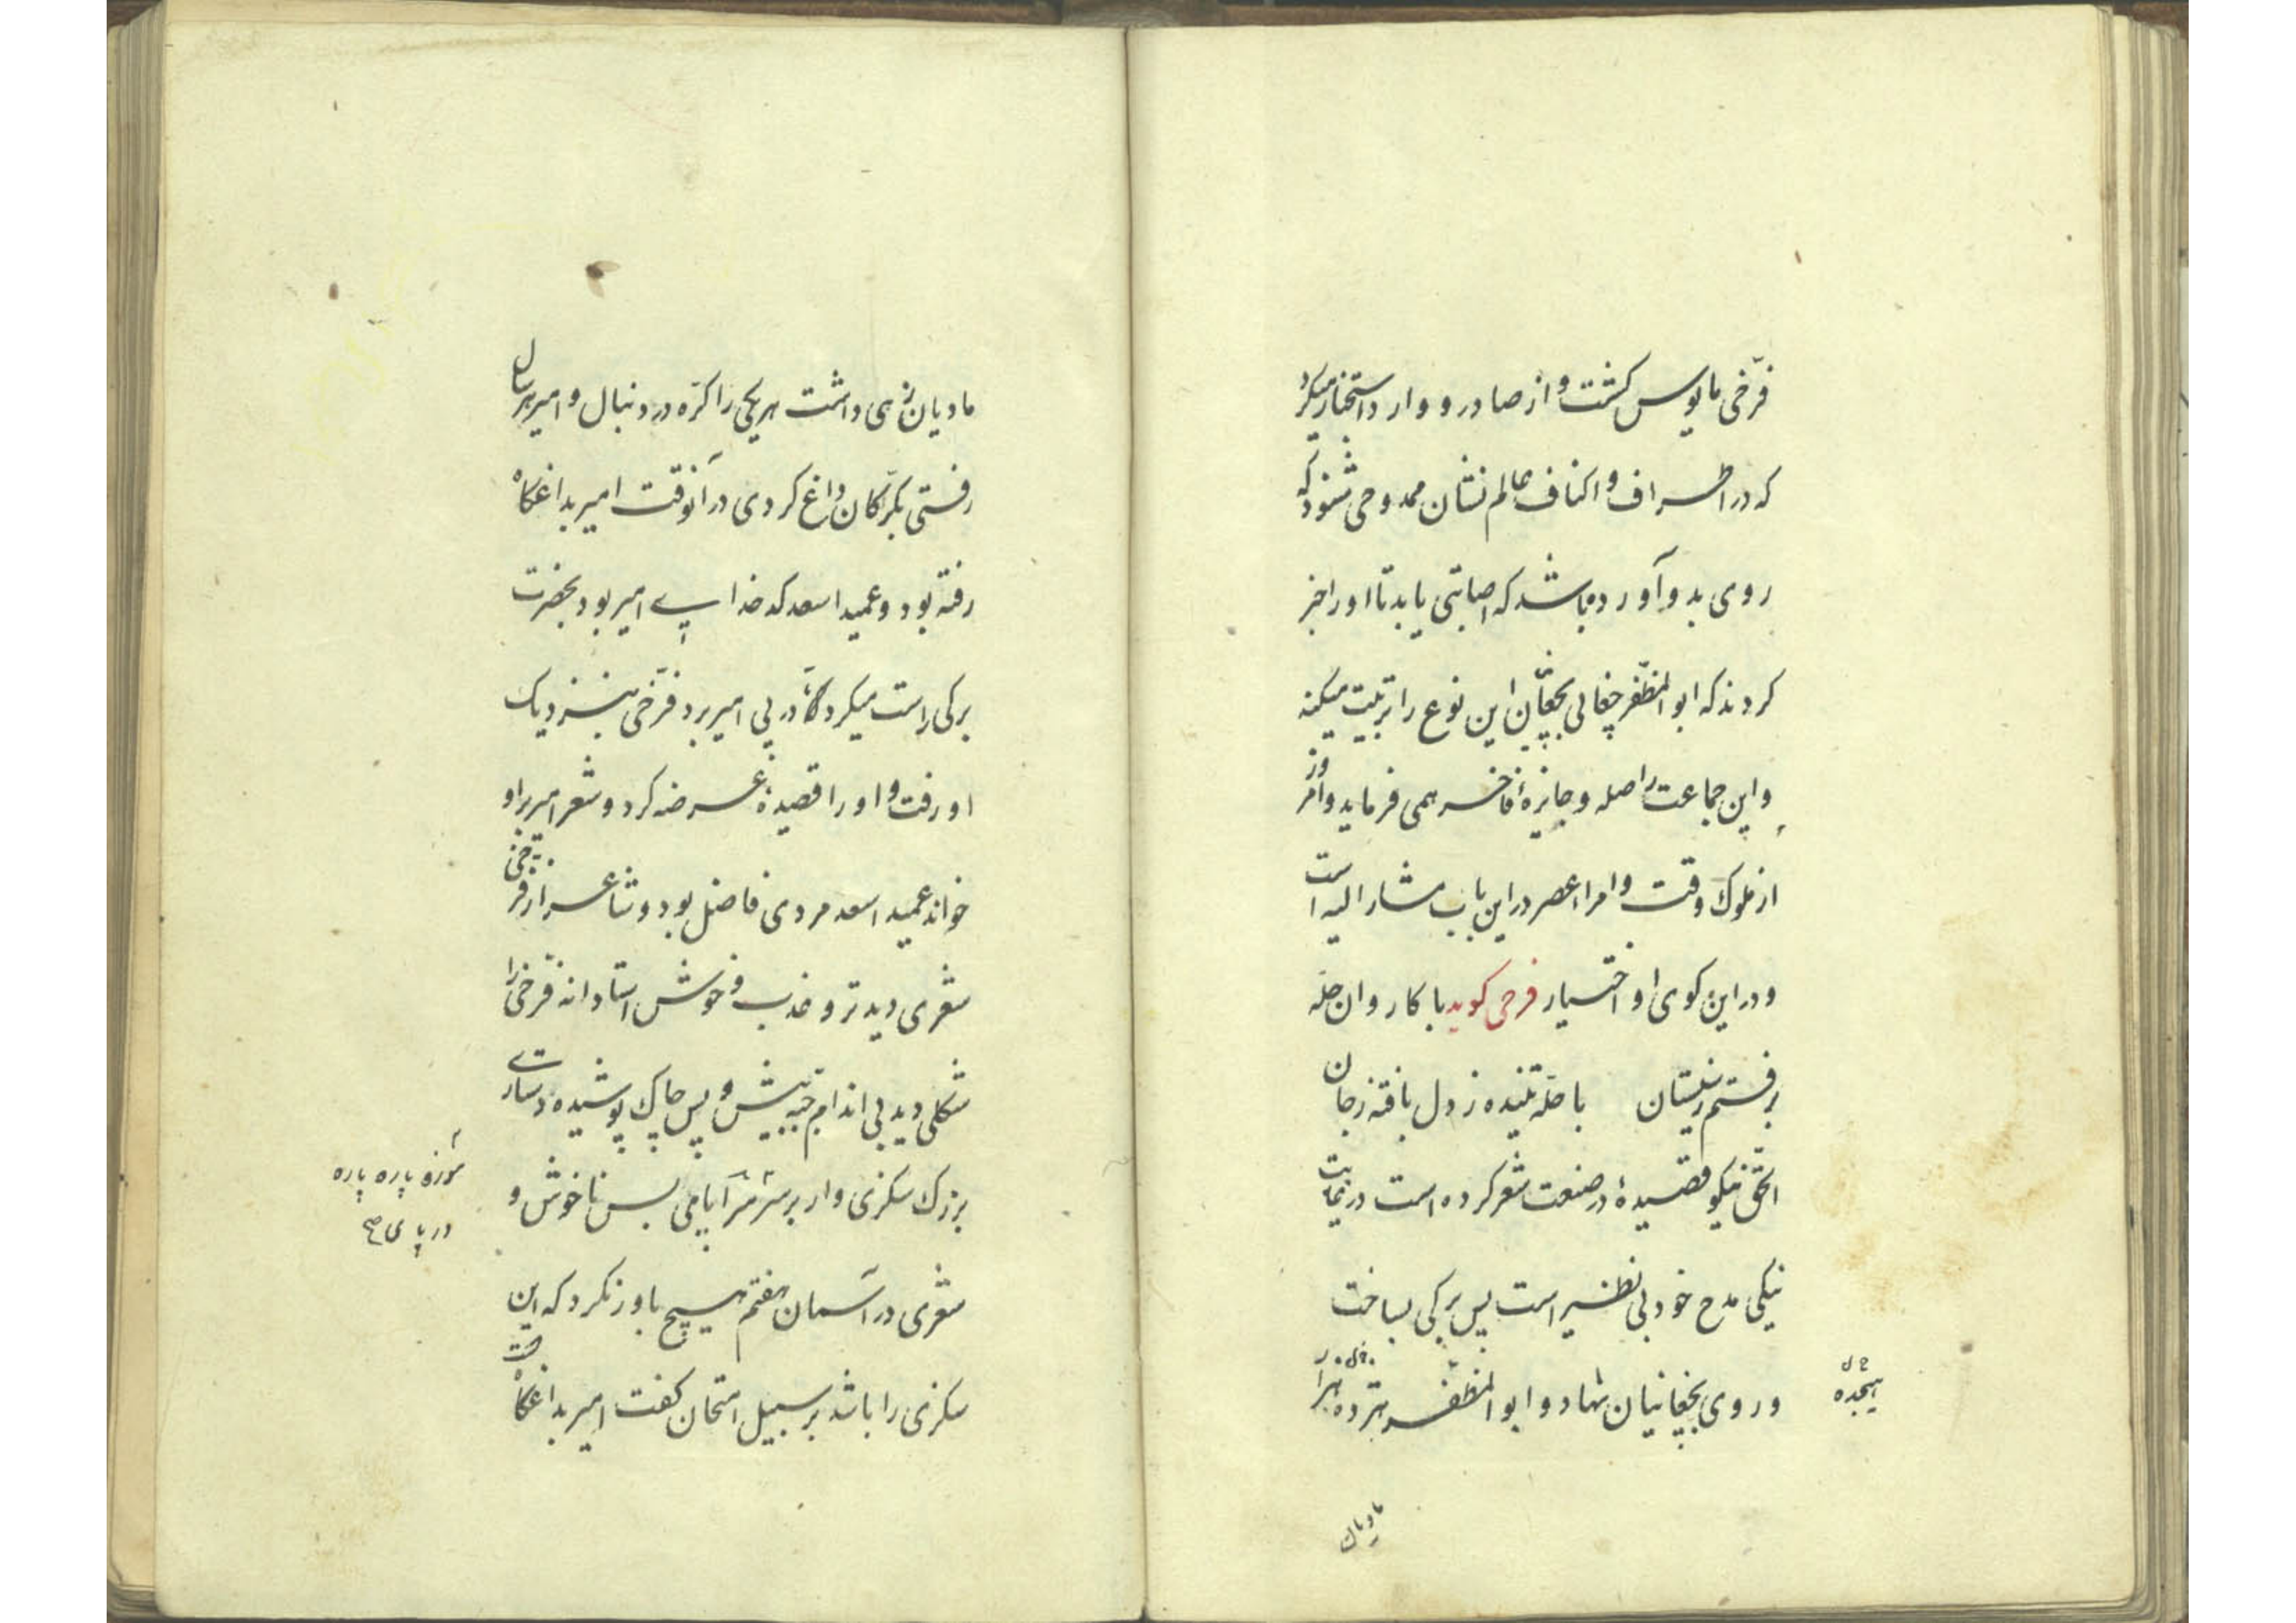 فرّخی مایوس کشت و از صادر و وارد استخبار میکرد
که در اطراف و اکناف عالم نشان ممدوحی شنود که
روی بدو آورده باشد که اصابتی یابد تا او را خبر
کردند که ابو المظفّر چغانی بچغانیان این نوع را تربیت میکند
و این جماعت را صله و جایزهٔ فاخر همی فرماید و امروز
از ملوک وقت و امراء عصر در این باب مشار الیه است
و در این کوی او اختیار فرخی کوید با کاروان حلّه
برفتم ز سیستان با حلّه تنیده ز دل بافته ز جان
الحق نیکو قصیدهٔ در صنعت شعر کرده است در نهایت
نیکی مدح خود بی نظیر است پس برکی بساخت
و روی بچغانیان نهاد و ابو المظفّر هژده هزار
هیجده ح ل
مادیان
مادیان زهی داشت هر یکی را کرّه در دنبال و امیر هر سال
رفتی و کرّکان داغ کردی در آنوقت امیر بداغکاه
رفته بود و عمید اسعد کدخدای امیر بود بحضرت
برکی راست میکرد تا در پی امیر برد فرّخی بنزدیک
او رفت و او را قصیدهٔ عرضه کرد و شعر امیر بر او
خواند عمید اسعد مردی فاضل بود و شاعر از فرّخی
شعری دید تر و عذب و خوش استادانه فرّخی را
شکلی دید بی اندام جبّه پیش و پس چاک پوشیده دستاری
بزرک سکزی وار بر سر سرآپا می بس ناخوش و
موزه پاره پاره
در پای ح
شعری در آسمان هفتم هیچ باور نکرد که این
سکزی را باشد بر سبیل امتحان کفت امیر بداغکاه است